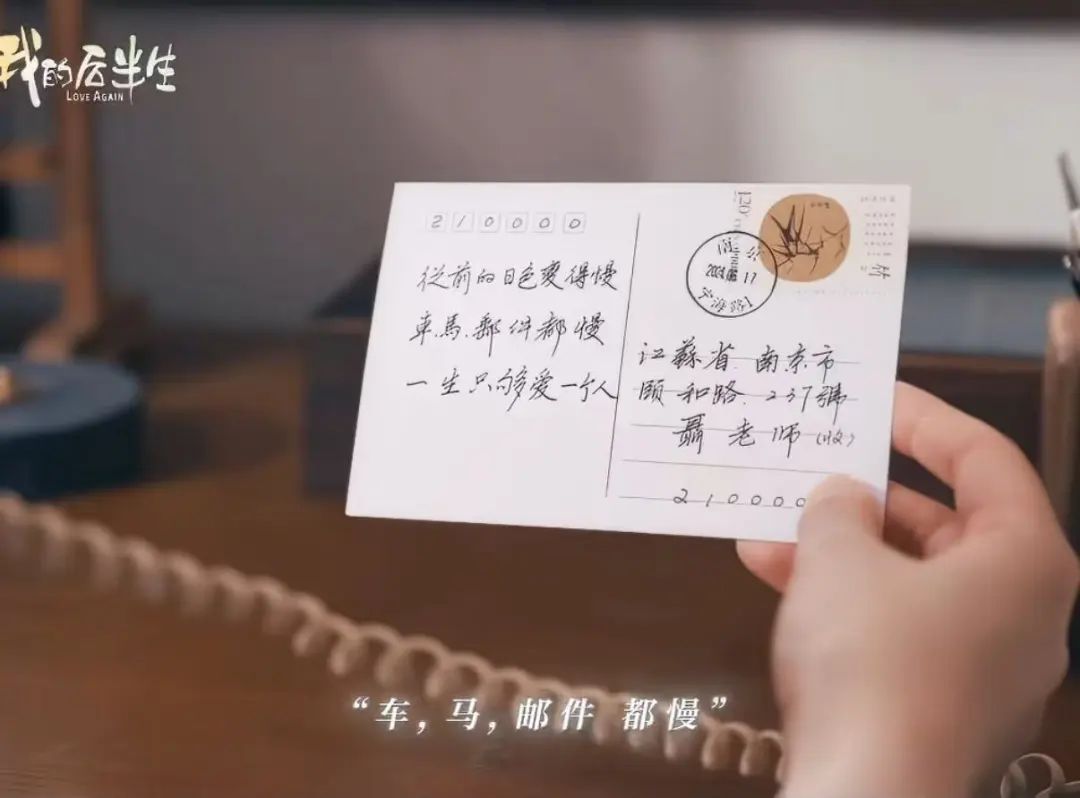 我的后半生
LOVE AGAIN
210000
從前的日色變得慢
車.馬.郵件都慢
一生只够爱一个人
1.20
竹
江蘇省.南京市
頤和路.237號
聶老师(收)
210000
“车,马,邮件 都慢”